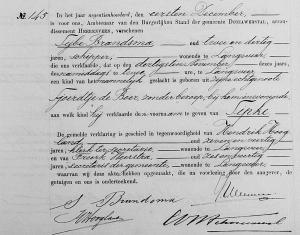 No 145 In het jaar negentienhonderd, den eersten December,
is voor ons, Ambtenaar van den Burgerlijken Stand der gemeente DONIAWERSTAL, arron-
dissement HEERENVEEN, verschenen
Sybe Brandsma oud twee en dertig
jaren, schipper, wonende te Langweer
die ons verklaarde, dat op den dertigsten November dezes jaars
des namiddags te uren, te Langweer
een kind van het mannelijk geslacht is geboren uit zijne echtgenoote
Tjeerdtje de Boer, zonder beroep, bij hem wonende
aan welk kind hij verklaarde den voornaam te geven van Sipke
De gemelde verklaring is geschied in tegenwoordigheid van Hendrik Hoog
land oud zeven en veertig
jaren, klerk ter secretarie wonende te Langweer
en Freerk oud zes en veertig
jaren, secretaris der gemeente wonende te Langweer
waarvan wij deze akte hebben opgemaakt, die na voorlezing door den aangever, de
getuigen en ons is onderteekend.
S Brandsma
H Hoogland